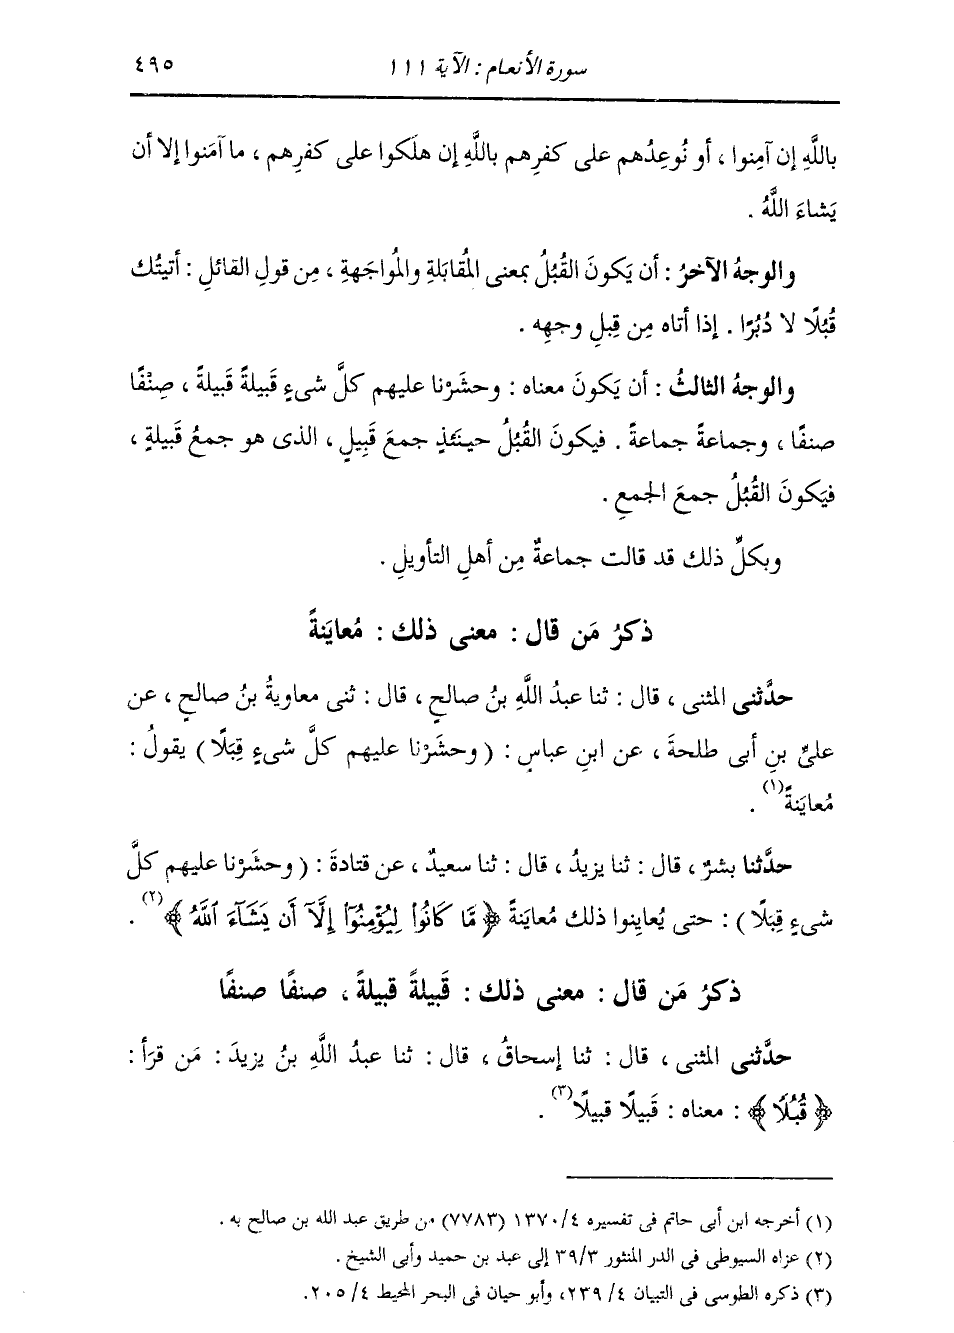 سورة الأنعام : الآية ١١١ ٤٩٥
باللَّهِ إن آمِنوا ، أو نُوعِدُهم على كفرِهم باللَّهِ إن هلَكوا على كفرِهم ، ما آمَنوا إلا أن
يَشاءَ اللَّهُ .
والوجهُ الآخرُ : أن يَكونَ القُبُلُ بمعنى المُقابَلةِ والمُواجَهةِ ، مِن قولِ القائلِ : أتيتُك
قُبُلًا لا دُبُرًا . إذا أتاه مِن قِبلِ وجهِه .
والوجهُ الثالثُ : أن يَكونَ معناه : وحشَرْنا عليهم كلَّ شىءٍ قَبيلةً قَبيلةً ، صِنْفًا
صنفًا ، وجماعةً جماعةً . فيكونَ القُبُلُ حينَئذٍ جمعَ قَبِيلٍ ، الذى هو جمعُ قَبيلةٍ ،
فيَكونَ القُبُلُ جمعَ الجمعِ .
وبكلِّ ذلك قد قالت جماعةٌ مِن أهلِ التأويلِ .
ذكرُ مَن قال : معنى ذلك : مُعايَنةً
حدَّثنى المثنى ، قال : ثنا عبدُ اللَّهِ بنُ صالحٍ ، قال : ثنى معاويةُ بنُ صالحٍ ، عن
علىِّ بنِ أبى طلحةَ ، عن ابنِ عباسٍ : ( وحشَرْنا عليهم كلَّ شىءٍ قِبَلًا ) يقولُ :
مُعايَنةً(١) .
حدَّثنا بشرٌ ، قال : ثنا يزيدُ ، قال : ثنا سعيدٌ ، عن قتادةَ : ( وحشَرْنا عليهم كلَّ
شىءٍ قِبَلًا ) : حتى يُعاينوا ذلك مُعاينَةً ﴿ مَّا كَانُوا۟ لِيُؤْمِنُوٓا۟ إِلَّآ أَن يَشَآءَ ٱللَّهُ ﴾(٢) .
ذكرُ مَن قال : معنى ذلك : قَبيلةً قبيلةً ، صنفًا صنفًا
حدَّثنى المثنى ، قال : ثنا إسحاقُ ، قال : ثنا عبدُ اللَّهِ بنُ يزيدَ : مَن قرَأ :
﴿ قُبُلًا ﴾ : معناه : قَبيلًا قبيلًا(٣) .
(١) أخرجه ابن أبى حاتم فى تفسيره ١٣٧٠/٤ (٧٧٨٣) من طريق عبد الله بن صالح به .
(٢) عزاه السيوطى فى الدر المنثور ٣٩/٣ إلى عبد بن حميد وأبى الشيخ .
(٣) ذكره الطوسى فى التبيان ٢٣٩/٤ ، وأبو حيان فى البحر المحيط ٢٠٥/٤ .